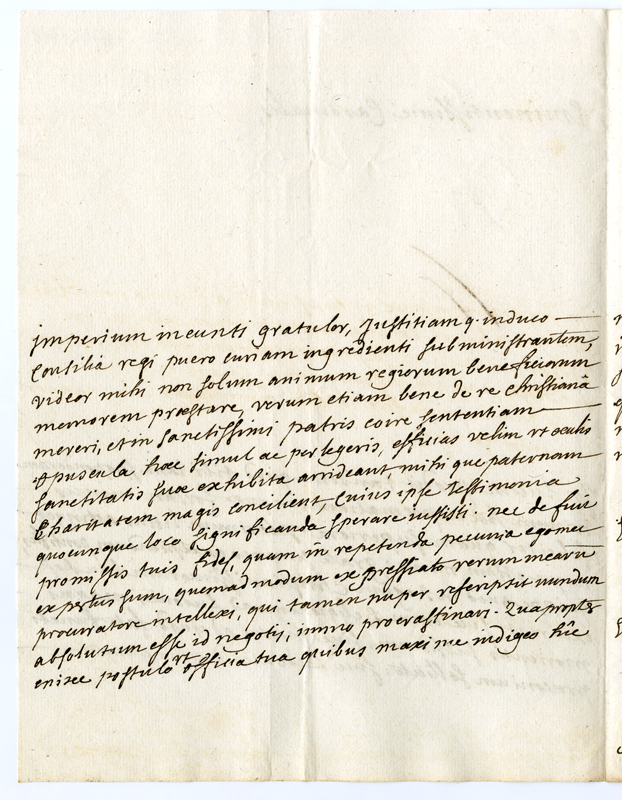 imperium ineunti gratulor, Justitiamq. induco
Consilia regi puero curiam ingredienti subministrantem,
videor mihi non solum animum regiorum beneficiorum
memorem præstare, verum etiam bene de re christiana
mereri, et in sanctissimi patris coire sententiam
Opuscula hæc simul ac perlegeris, efficias velim vt oculis
sanctitatis suæ exhibita arrideant, mihi que paternam
Charitatem magis concilient, Cuius ipse testimonia
quocunque loco significanda sperare iussisti. nec defuit
promissis tuis fides, quam in repetenda pecunia egomet
expertus sum, quemadmodum ex Pressiato rerum mearū
procuratore intellexi, qui tamen nuper rescripsit nundum
absolutum esse id negotij, immo procrastinari. Quapropter
enixe postulo vt officia tua quibus maxime indigeo hûc